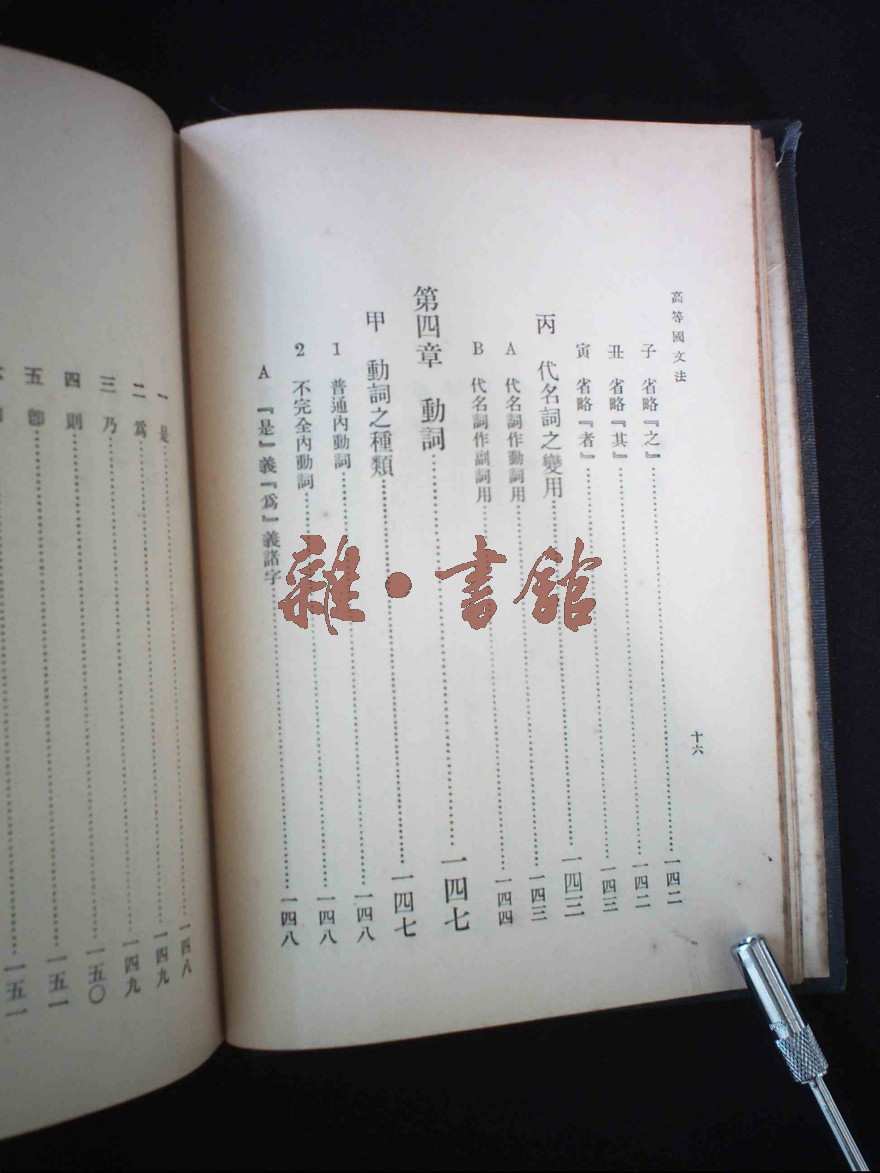 高等國文法
十六
子 省略『之』 一四二
丑 省略『其』 一四二
寅 省略『者』 一四三
丙 代名詞之變用 一四三
A 代名詞作動詞用 一四三
B 代名詞作副詞用 一四四
第四章 動詞 一四七
甲 動詞之種類 一四七
1 普通內動詞 一四八
2 不完全內動詞 一四八
A 『是』義『爲』義諸字 一四八
一 是 一四八
二 爲 一四九
三 乃 一四九
四 則 一五〇
五 卽 一五一
一五一
雜·書館